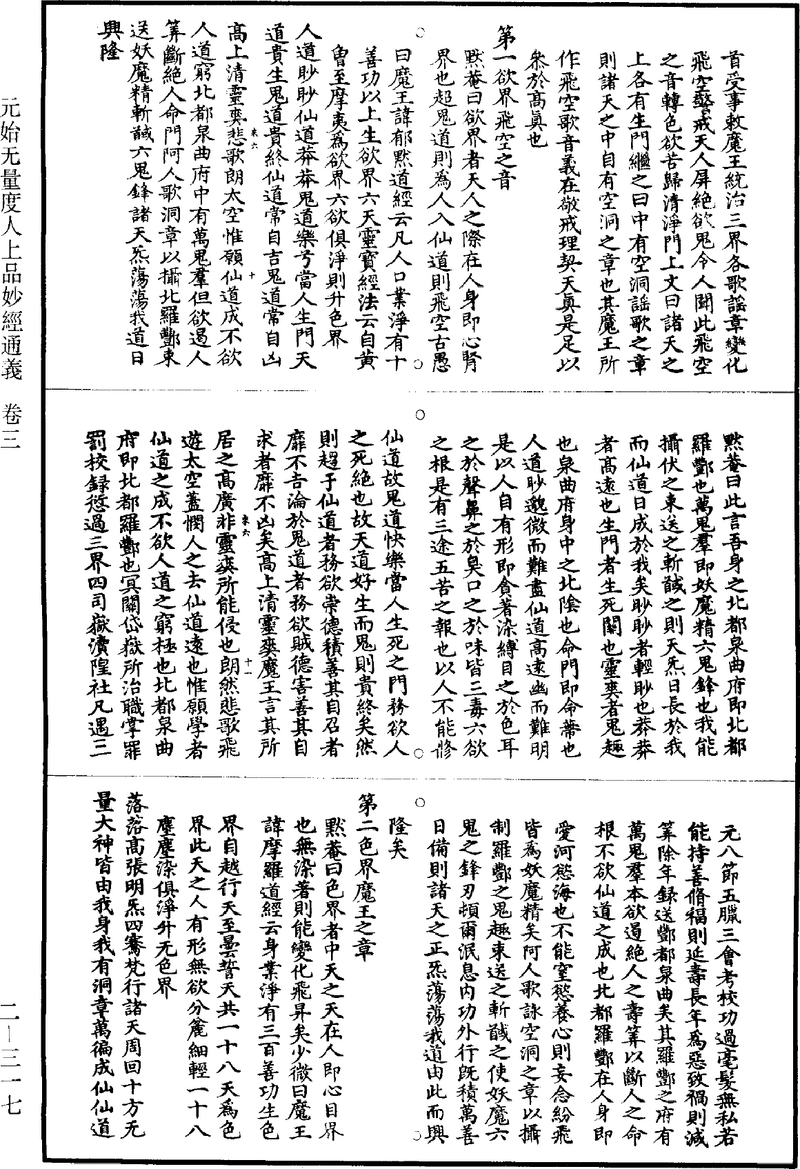 首受事敕魔王統治三界各歌謠章變化
飛空警戒天人屏絕欲鬼令人聞此飛空
之音轉色欲苦歸清淨門上文曰諸天之
上各有生門繼之曰中有空洞謠歌之章
則諸天之中自有空洞之章也其魔王所
作飛空歌音義在敬戒理契天真是足以
叅於髙眞也
第一欲界飛空之音
黙菴曰欲界者天人之際在人身即心腎
界也超鬼道則為人入仙道則飛空古愚
曰魔王諱郁黙道經云凡人口業淨有十
善功以上生欲界六天靈寶經法云自黄
曽至摩夷為欲界六欲俱淨則升色界
人道眇眇仙道莽莽鬼道樂兮當人生門天
道貴生鬼道貴終仙道常自吉鬼道常自凶
髙上清靈爽悲歌朗太空惟願仙道成不欲
人道窮北都泉曲府中有萬鬼羣但欲遏人
筭斷絕人命門阿人歌洞章以攝北羅酆束
送妖魔精斬馘六鬼鋒諸天炁蕩蕩我道日
興隆
黙菴曰此言吾身之北都泉曲府即北都
羅酆也萬鬼羣即妖魔精六鬼鋒也我能
攝伏之束送之斬馘之則天炁日長於我
而仙道日成於我矣眇眇者輕眇也莽莽
者髙遠也生門者生死關也靈爽者鬼趣
也泉曲府身中之北陰也命門即命蒂也
人道眇邈微而難盡仙道髙遠幽而難明
是以人自有形即貪著染縛目之於色耳
之於聲鼻之於臭口之於味皆三毒六欲
之根是有三途五苦之報也以人不能脩
仙道故鬼道快樂當人生死之門務欲人
之死絕也故天道好生而鬼則貴終矣然
則超于仙道者務欲崇德積善其自召者
靡不吉淪於鬼道者務欲賊德害善其自
求者靡不凶矣髙上清靈爽魔王言其所
居之髙廣非靈爽所能侵也朗然悲歌飛
遊太空蓋憫人之去仙道遠也惟願學者
仙道之成不欲人道之窮極也北都泉曲
府即北都羅酆也冥關岱嶽所治職掌罪
罰校録愆過三界四司嶽瀆隍社凡遇三
元八節五臘三會考校功過毫髮無私若
能持善脩福則延壽長年為惡致禍則減
筭除年録送酆都泉曲矣其羅酆之府有
萬鬼羣本欲遏絕人之壽筭以斷人之命
根不欲仙道之成也北都羅酆在人身即
愛河慾海也不能窒慾養心則妄念紛飛
皆為妖魔精矣阿人歌詠空洞之章以攝
制羅酆之鬼趣束送之斬馘之使妖魔六
鬼之鋒刃頓爾泯息内功外行旣積萬善
日備則諸天之正炁蕩蕩我道由此而興
隆矣
第二色界魔王之章
黙菴曰色界者中天之天在人即心目界
也無染著則能變化飛昇矣少微曰魔王
諱摩羅道經云身業淨有三百善功生色
界自越行天至曇誓天共一十八天為色
界此天之人有形無欲分麄細輕一十八
塵塵染俱淨升无色界
落落髙張明炁四騫梵行諸天周回十方无
量大神皆由我身我有洞章萬徧成仙仙道
元始无量度人上品妙經通義　卷三
二－三一七
来六
十
来六
十一